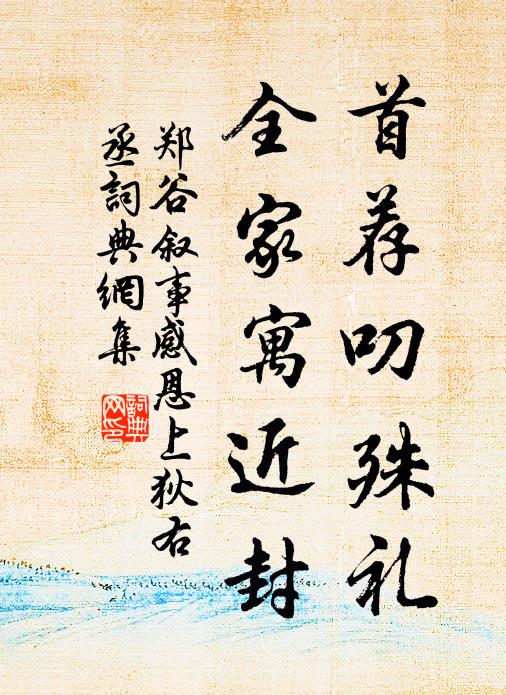 首荐叨殊礼
全家寓近封
郑谷叙事感恩上狄右
丞詞典網集
詞典
网印